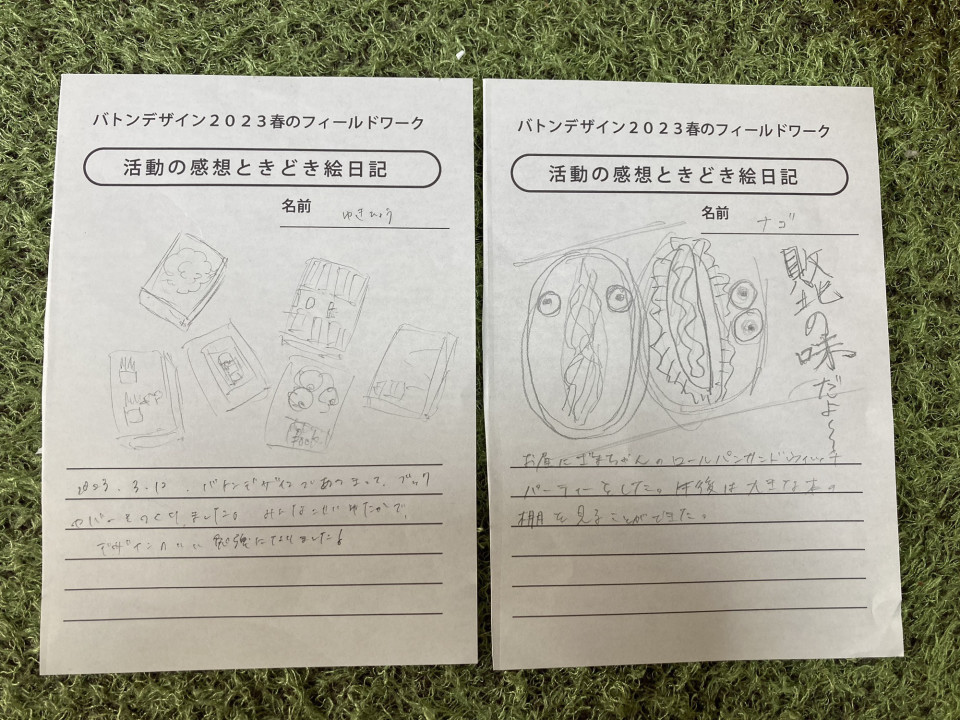 バトンデザイン2023春のフィールドワーク
活動の感想ときどき絵日記
名前 ゆきひょう
Book
2023.3.12. バトンデザインであつまって、ブック
カバーをつくりました。みんな ゆたかで、
デザインの 勉強になりました!
バトンデザイン2023春のフィールドワーク
活動の感想ときどき絵日記
名前 ナゴ
敗北の味だよ〜〜
お昼に ちゃんのロールパンサンドウィッチ
パーティーをした。午後は大きな本の
棚を見ることができた。